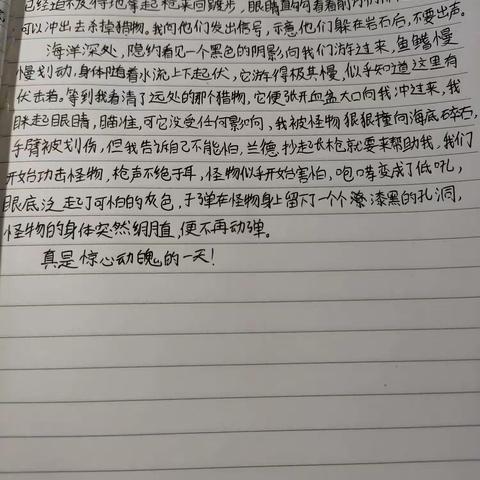 已经迫不及待地拿起枪来回踱步，眼睛直勾勾看着前方
可以冲出去杀掉猎物。我向他们发出信号，示意他们躲在岩石后，不要出声。
海洋深处，隐约看见一个黑色的阴影向我们游过来，鱼鳍慢
慢划动，身体随着水流上下起伏，它游得极其慢，似乎知道这里有
伏击者。等到我看清了远处的那个猎物，它便张开血盆大口向我冲过来，我
眯起眼睛，瞄准，可它没受任何影响，我被怪物狠狠撞向海底碎石，
手臂被划伤，但我告诉自己不能怕，兰德抄起张枪就要来帮助我，我们
开始功击怪物，枪声不绝于耳，怪物似乎开始害怕，咆哮变成了低吼，
眼底泛起了可怕的灰色，子弹在怪物身上留下一个个潦漆黑的孔洞，
怪物的身体突然绷直，便不再动弹。
真是惊心动魄的一天！